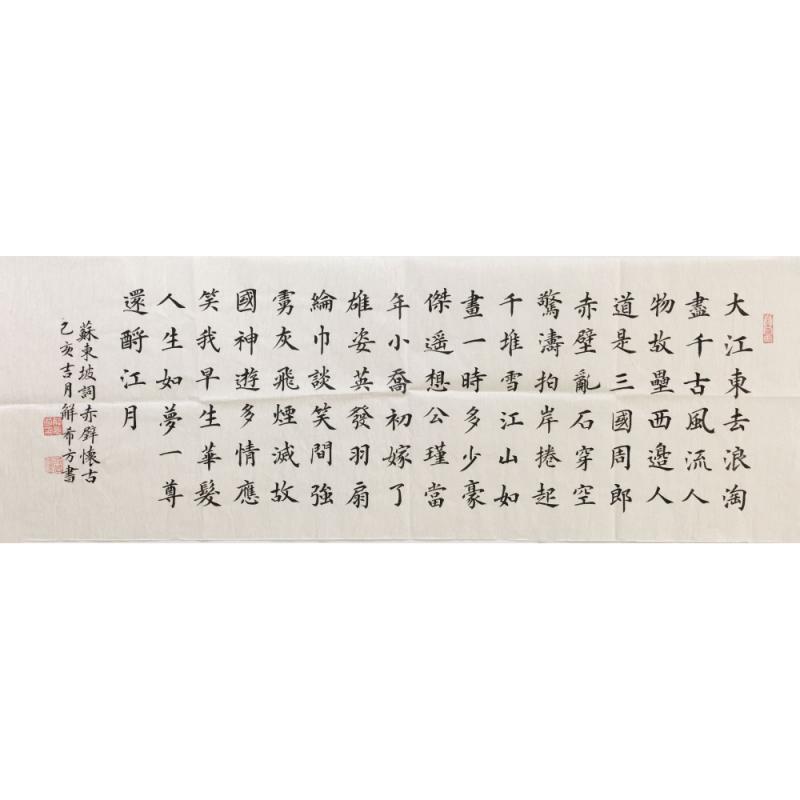 大江東去浪淘
盡千古風流人
物故壘西邊人
道是三國周郎
赤壁亂石穿空
驚濤拍岸捲起
千堆雪江山如
畫一時多少豪
傑遥想公瑾當
年小喬初嫁了
雄姿英發羽扇
綸巾談笑間強
虜灰飛煙滅故
國神遊多情應
笑我早生華髮
人生如夢一尊
還酹江月
蘇東坡詞赤壁懷古
己亥吉月解希方書